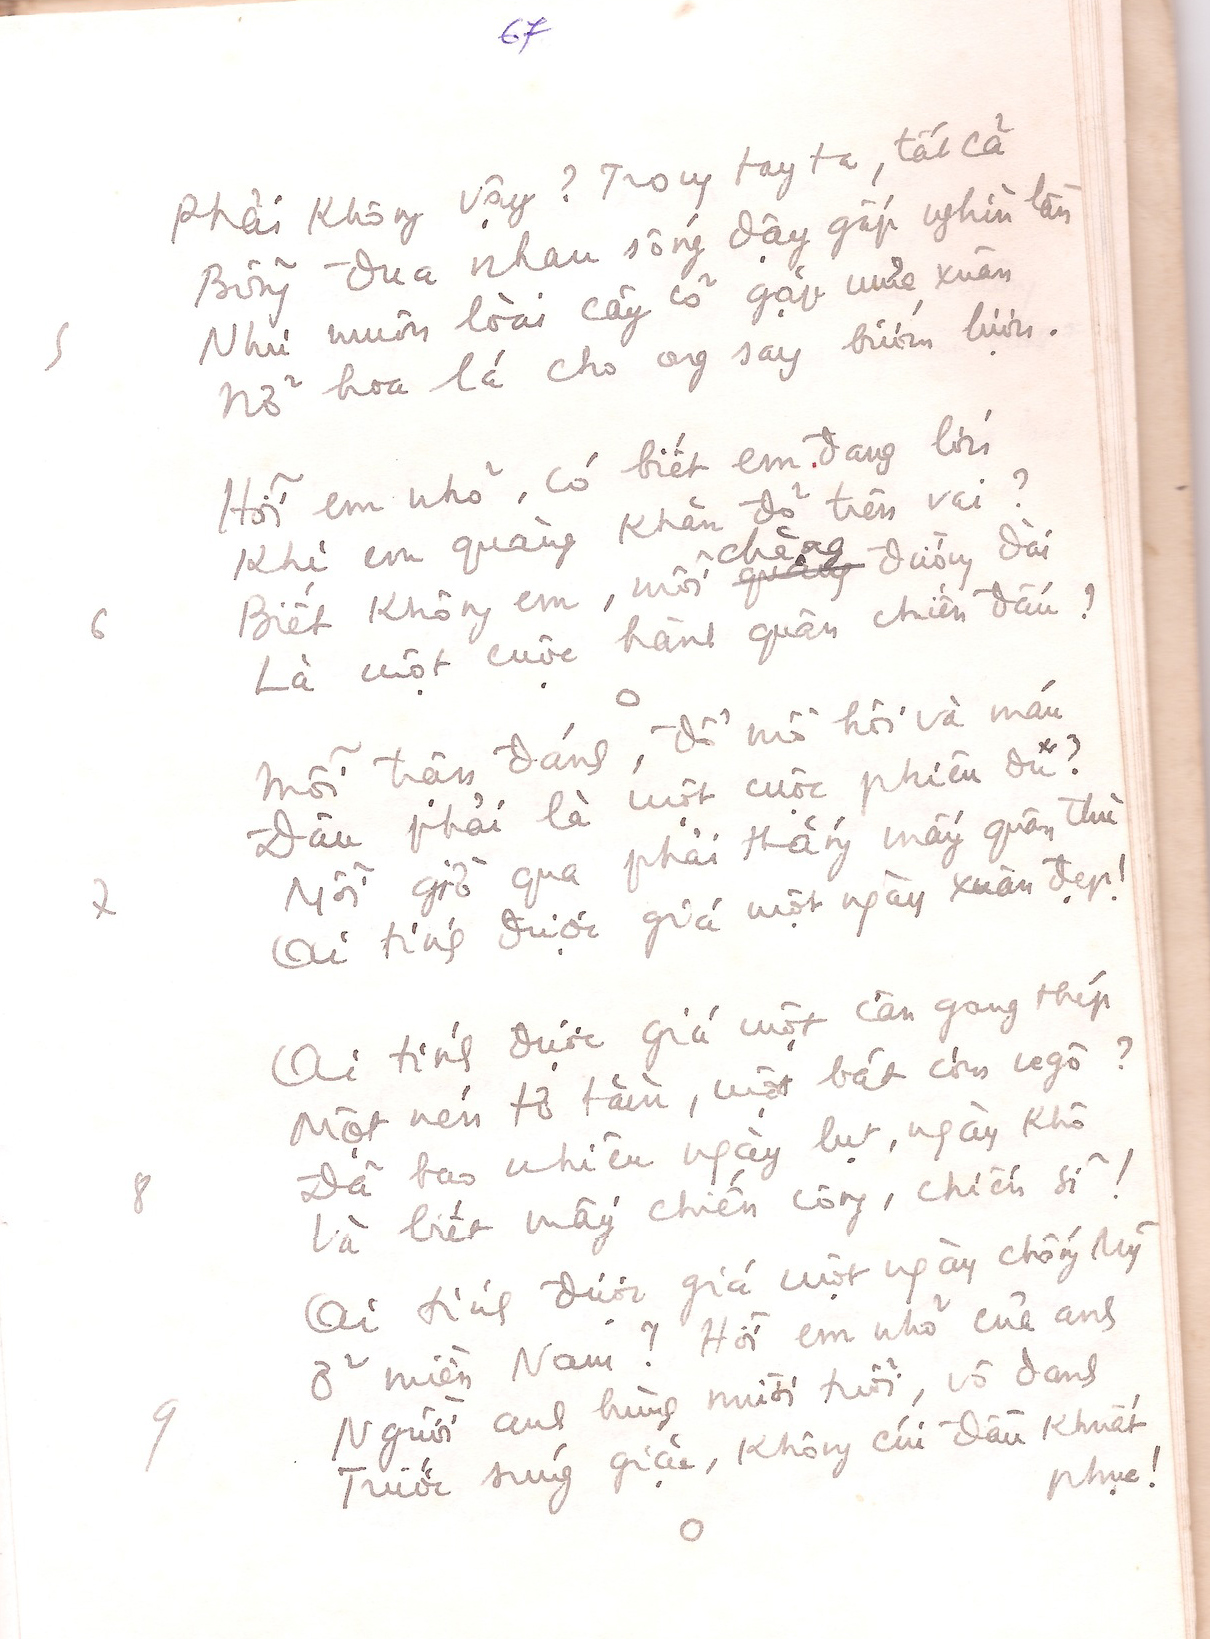 67
Phải không vậy? Trong tay ta, tất cả
Bỗng đua nhau sống dậy gấp nghìn lần
Như muôn loài cây cỏ gặp mùa xuân
5
Nở hoa lá cho ong say bướm lượn.
Hỡi em nhỏ, có biết em đang lớn
Khi em quàng khăn đỏ trên vai?
chặng
Biết không em, mỗi quãng đường dài
6
Là một cuộc hành quân chiến đấu?
o
Mỗi trận đánh, đổ mồ hôi và máu
Đâu phải là một cuộc phiêu đu?
Mỗi giờ qua phải thắng mấy quân thù
7
Ai tính được giá một ngày xuân đẹp!
Ai tính được giá một cân gang thép
Một nén tơ tằm, một bát cơm ngô?
Đã bao nhiêu ngày lụt, ngày khô
8
Và biết mấy chiến công, chiến sĩ!
Ai tính được giá một ngày chống Mỹ
Ở miền Nam? Hỡi em nhỏ của anh
Người anh hùng mười tuổi, vô danh
9
Trước súng giặc, không cúi đầu khuất
phục!
o